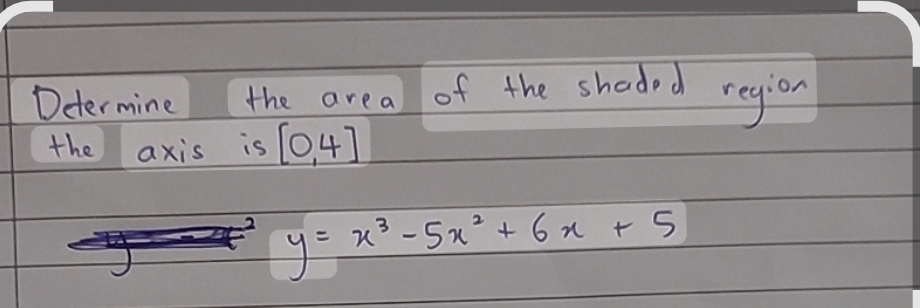 Determine the area of the shaded region
the axis is [0,4]
y = x³ - 5x² + 6x + 5